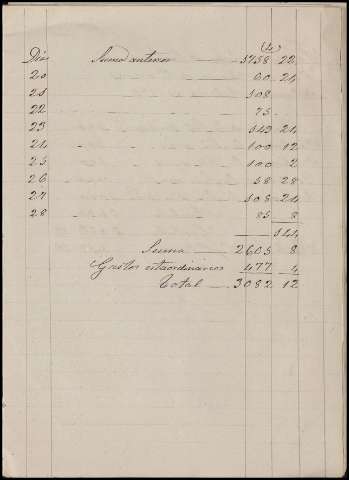 (4)
Dias Suma anterior 1758 22
20 60 24
21 108
22 75
23 143 24
24 100 12
25 100 2
26 58 28
27 108 24
28 85 8
144
Suma 2605 8
Gastos estraordinarios 477 4
Total 3082 12